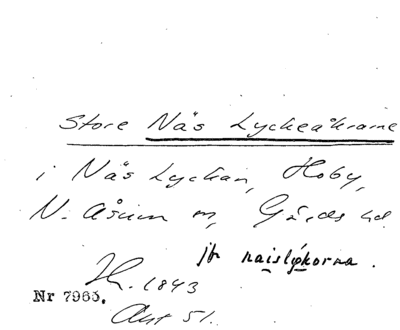 Store Näs Lyckeåkrarne
i Näs Lyckan, Hoby,
N. Åsum sn, Gärds hd.
jfr naislýkorna.
H. 1843
Nr 7963.
Akt 51.